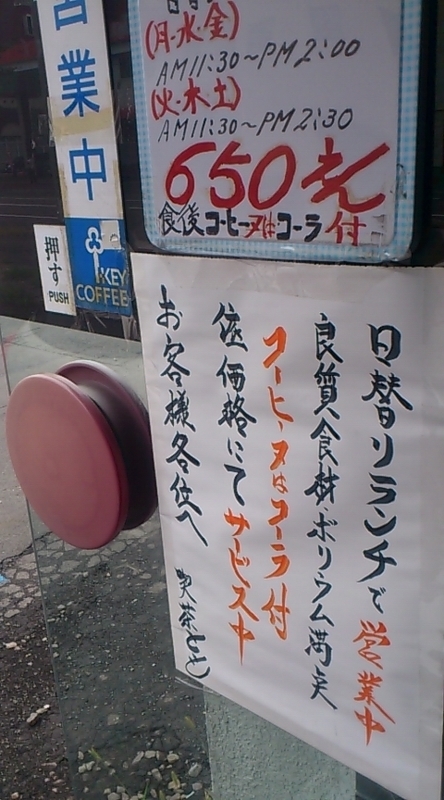 営業中
押す
PUSH
KEY
COFFEE
(月・水・金)
AM11:30〜PM2:00
(火・木・土)
AM11:30〜PM2:30
650えん
食後コーヒー又はコーラ付
日替りランチで営業中
良質食材・ボリウム満点
コーヒー又はコーラ付
低価格にてサービス中
お客様各位へ
喫茶とも